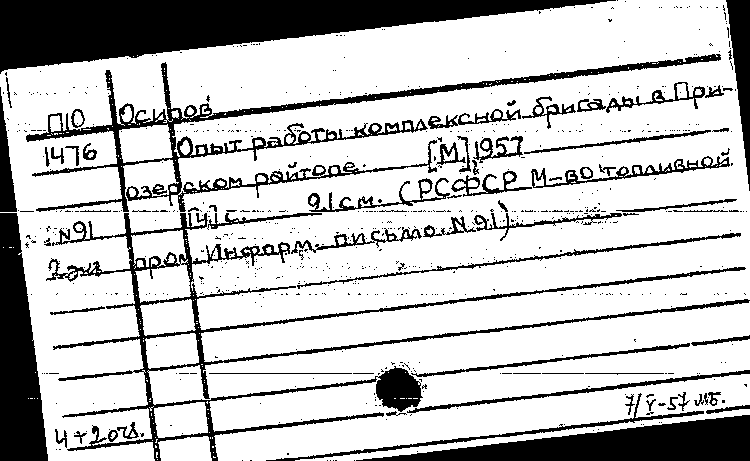 П10 Осипов
1476 Опыт работы комплексной бригады в При-
озерском райтопе. [М] 1957
N91 [4] с. 21 см. (РСФСР М-во топливной
2 экз пром. Информ. письмо. N 91)
7/V-57 МБ.